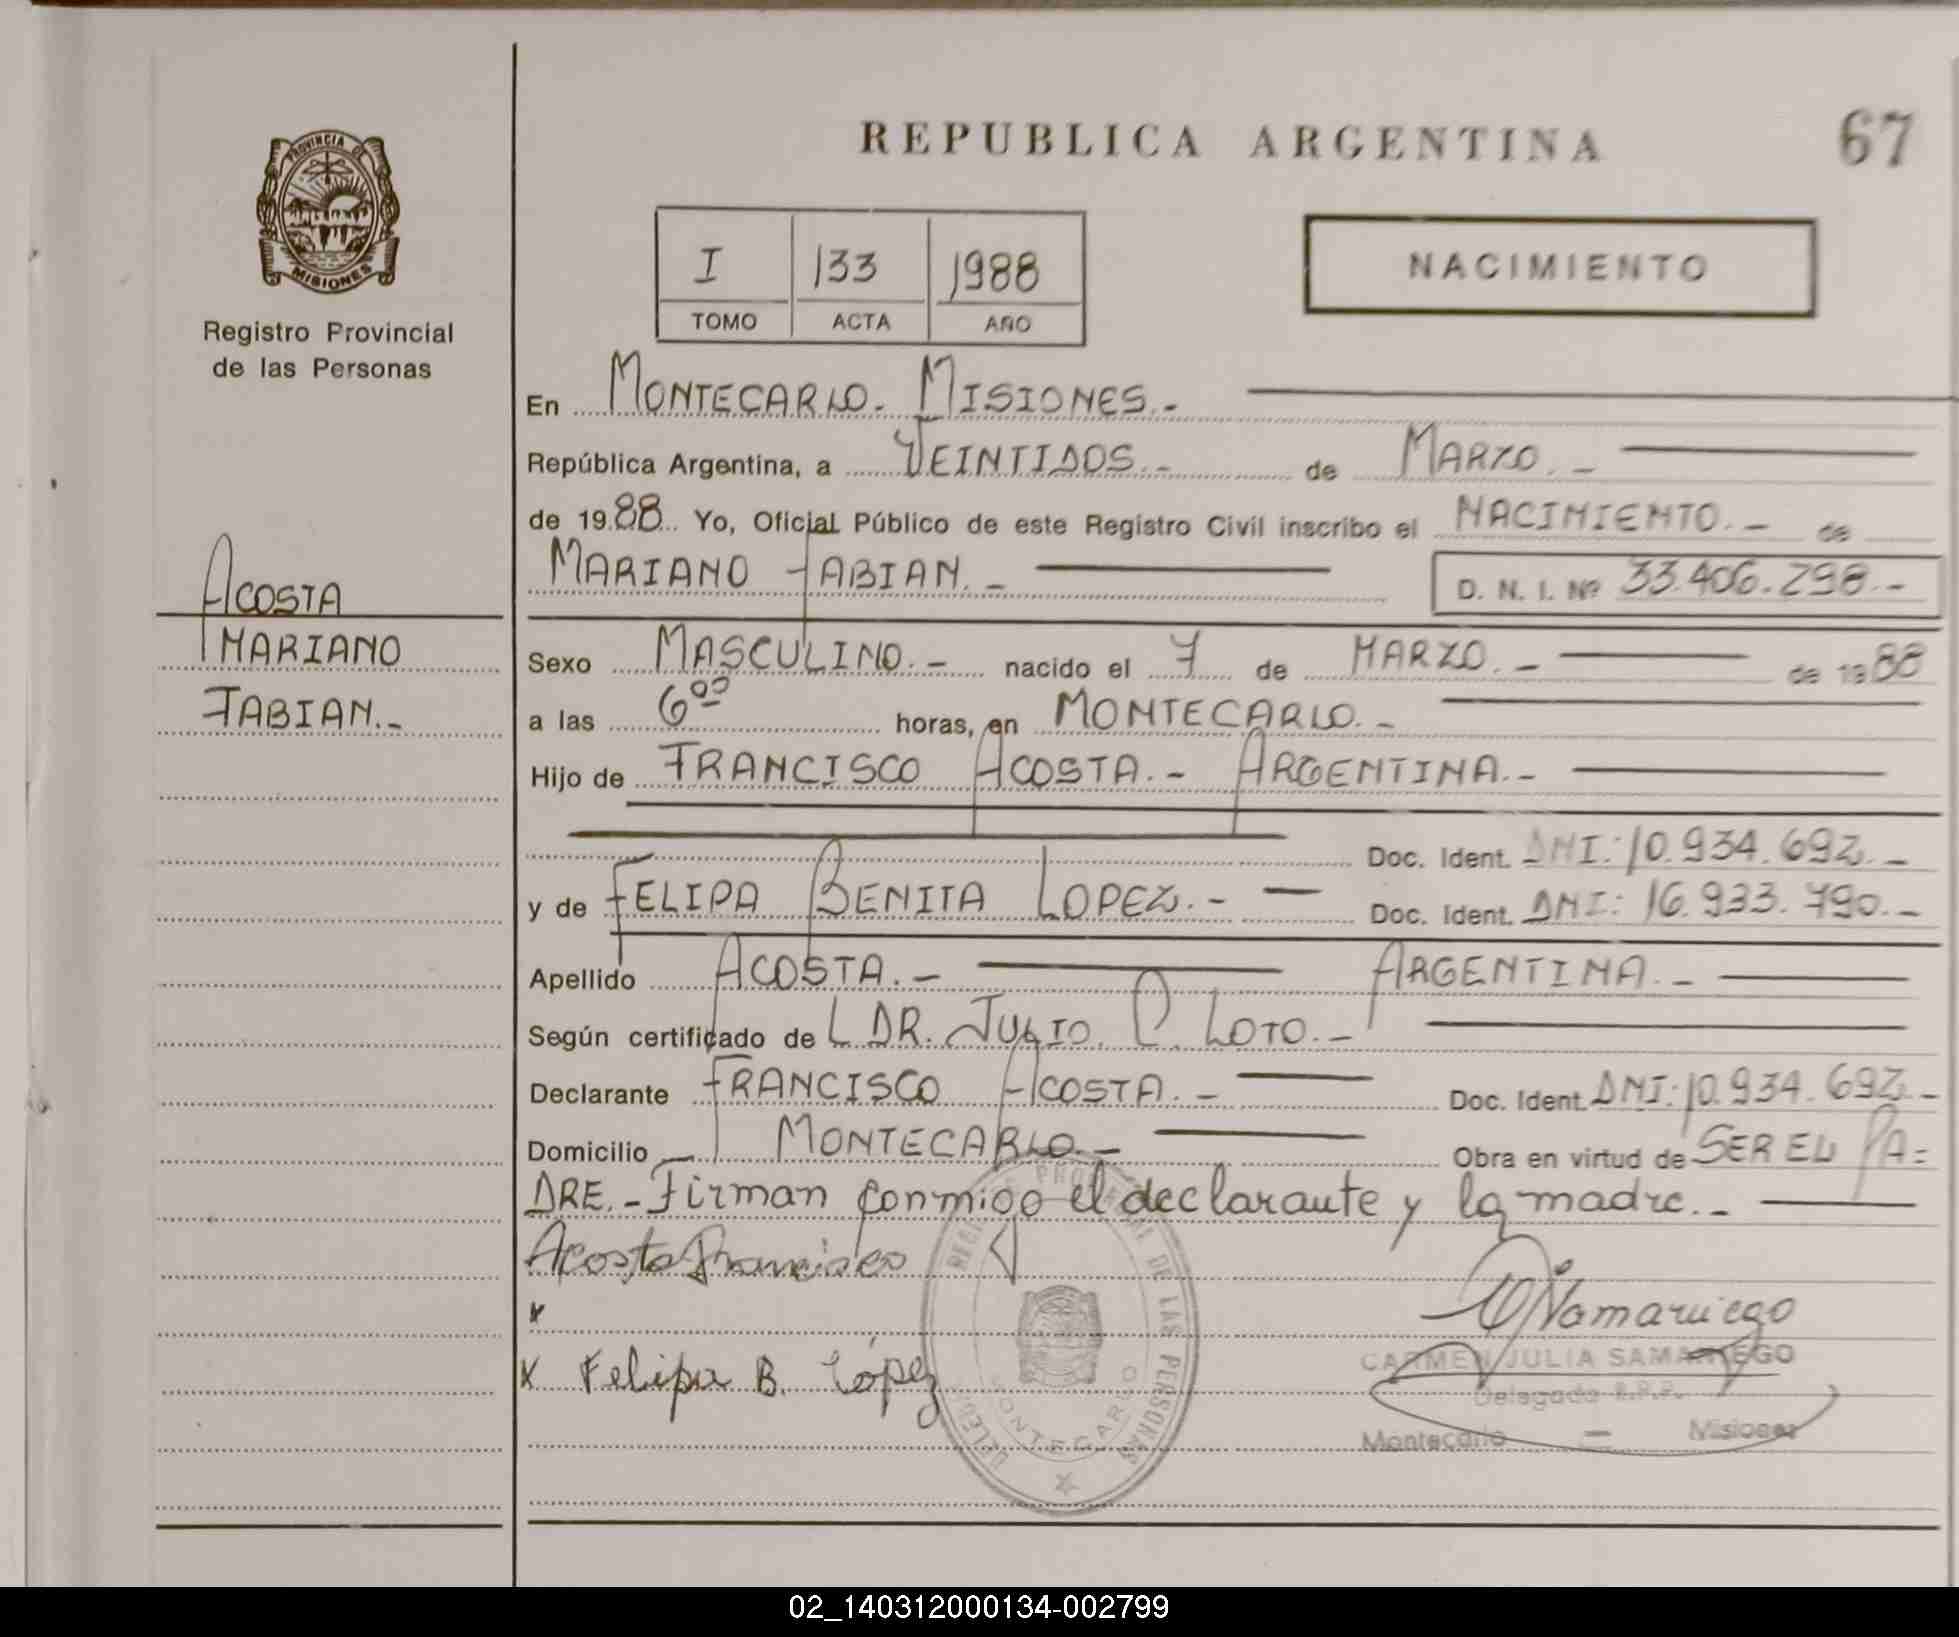 REPUBLICA ARGENTINA
67
PROVINCIA DE
MISIONES
Registro Provincial
de las Personas
I 133 1988
TOMO ACTA AÑO
NACIMIENTO
En MONTECARLO.- MISIONES.-
República Argentina, a VEINTIDOS.- de MARZO.-
de 1988 Yo, Oficial Público de este Registro Civil inscribo el NACIMIENTO.- de
MARIANO FABIAN.- D. N. I. Nº 33.406.298.-
ACOSTA
MARIANO
FABIAN.-
Sexo MASCULINO.- nacido el 7 de MARZO.- de 1988
a las 6⁰⁰ horas, en MONTECARLO.-
Hijo de FRANCISCO ACOSTA.- ARGENTINA.-
Doc. Ident. DNI: 10.934.692.-
y de FELIPA BENITA LOPEZ.- Doc. Ident. DNI: 16.933.790.-
Apellido ACOSTA.- ARGENTINA.-
Según certificado de L DR. JULIO. C. LOTO.-
Declarante FRANCISCO ACOSTA.- Doc. Ident. DNI: 10.934.692.-
Domicilio MONTECARLO.- Obra en virtud de SER EL PA=
DRE.- Firman conmigo el declarante y la madre.-
Acosta Francisco
x
x Felipa B. López
DELEG MONTECARLO
REGISTRO PROVINCIAL DE LAS PERSONAS
CARMEN JULIA SAMANIEGO
Delegada R.P.P.
Montecarlo - Misiones
02_140312000134-002799